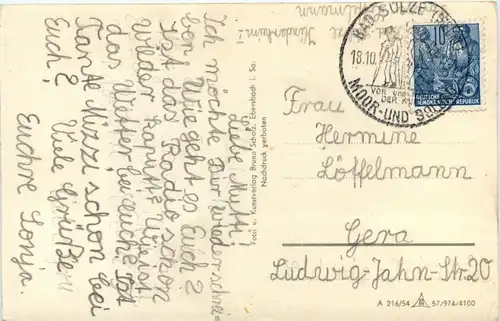 Liebe Mutti!
Ich möchte dir wiederschrei-
ben. Wie geht es Euch?
Ist das Radio schon
wieder kaputt? Wie ist
das Wetter bei euch? Ist
Tante Mizzi schon bei
Euch? Viele Grüße
Euchre Sonja.
Foto u. Kunstverlag Bruno Scholz, Ebersbach i. Sa.
Nachdruck verboten
BAD SÜLZE
18.10.
MOOR- UND
10
DEUTSCHE
DEMOKRATISCHE REPUBLIK
Frau
Hermine
Löffelmann
Gera
Ludwig-Jahn-Str. 20
A 216/54 57/974/4100